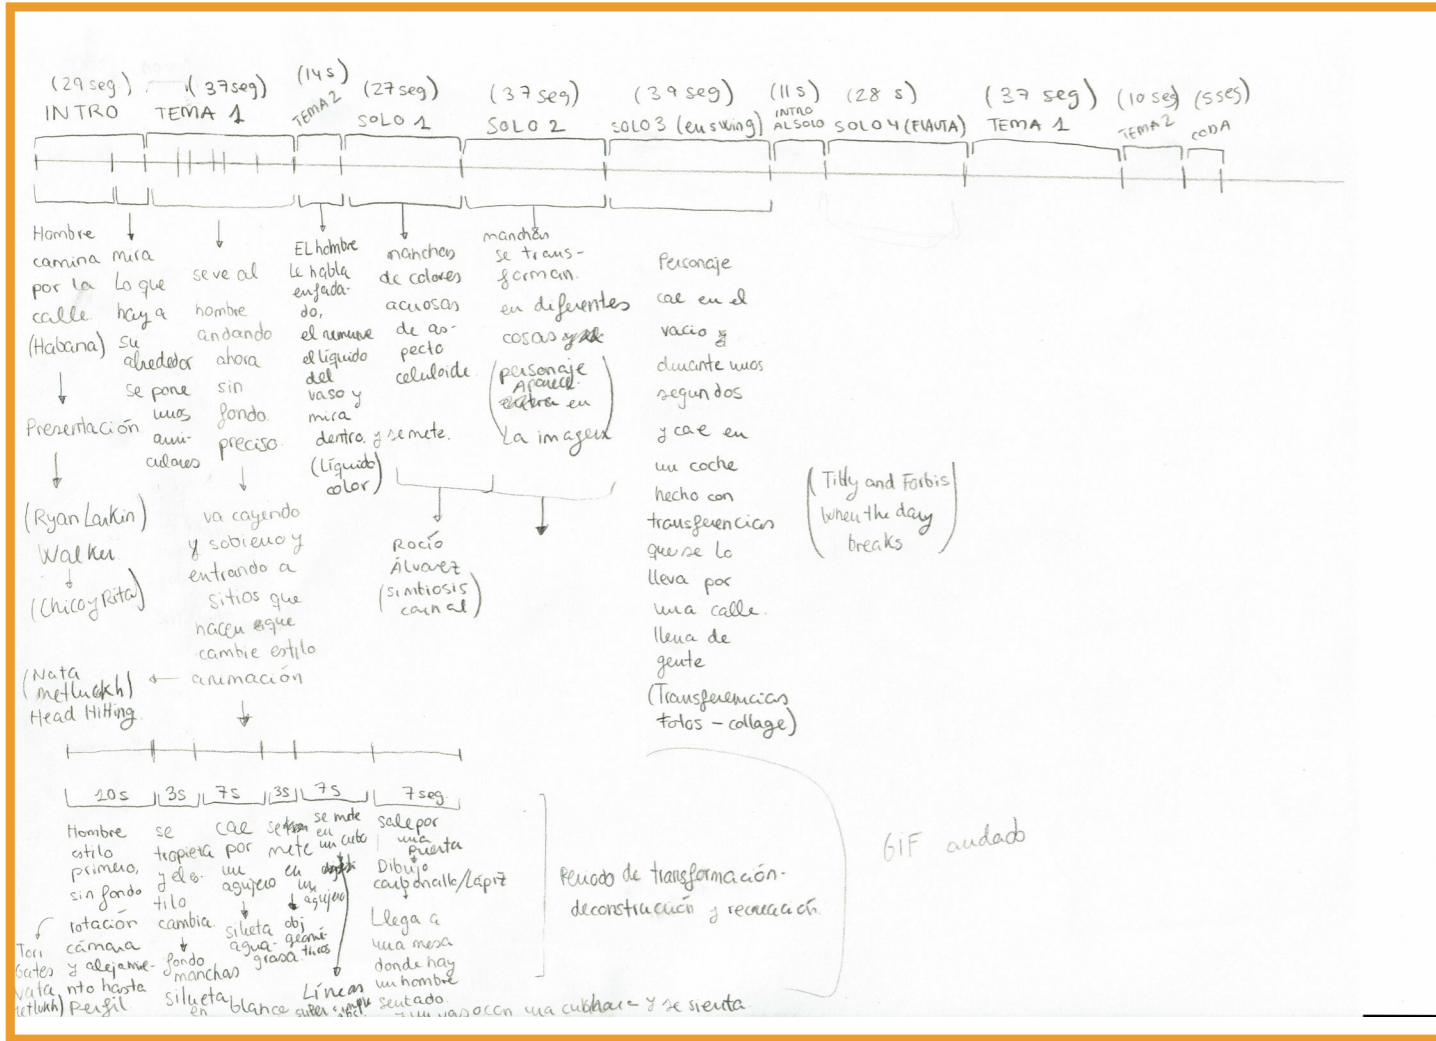 (29 seg)
INTRO
(37 seg)
TEMA 1
(14 s)
TEMA 2
(27 seg)
SOLO 1
(37 seg)
SOLO 2
(39 seg)
SOLO 3 (en swing)
(11 s)
INTRO
AL SOLO
(28 s)
SOLO 4 (FLAUTA)
(37 seg)
TEMA 1
(10 seg)
TEMA 2
(5 seg)
CODA
Hombre
camina
por la
calle
(Habana)
Presentación
(Ryan Larkin)
Walker
(Chico y Rita)
mira
Lo que
hay a
su
alrededor
se pone
unos
auri-
culares
se ve al
hombre
andando
ahora
sin
fondo
preciso.
va cayendo
y
entrando a
sitios que
hacen que
cambie estilo
animación
(Nata
Metlukh)
Head Hitting
EL hombre
Le habla
enfada-
do,
el remueve
el líquido
del
vaso y
mira
dentro y se mete.
(Líquido
color)
manchas
de colores
acuosas
de as-
pecto
celuloide.
manchas
se trans-
forman
en diferentes
cosas y
(personaje
Aparece
en
La imagen)
Rocío
Álvarez
(simbiosis
carnal)
Personaje
cae en el
vacio
durante unos
segundos
y cae en
un coche
hecho con
transferencias
que se lo
lleva por
una calle.
llena de
gente
(Transferencias
Fotos - collage)
(Tilby and Forbis
When the day
breaks)
10 s
3s
7s
3s
7s
7 seg.
Hombre
estilo
primero,
sin fondo
rotación
cámara
y alejamie-
nto hasta
Perfil
se
tropieza
y el es-
tilo
cambia.
fondo
manchas
silueta
en blanco
cae
por
un
agujero
silueta
agua-
grasa
se
mete
en
un
agujero
obj
geomé-
tricos
se mete
en
un cubo
Líneas
super
sale por
una
puerta
Dibujo
carboncillo/Lápiz
Llega a
una mesa
donde hay
un hombre
sentado.
y un vaso con una cuchara y se sienta
Tori
Gates
Nata
Metlukh)
Periodo de transformación-
deconstrucción y recreación.
GIF andado